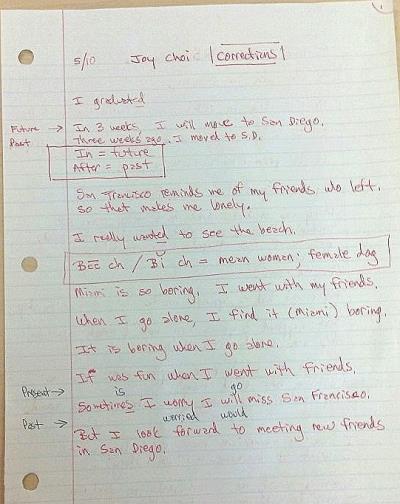 1
5/10 Joy Choi Corrections
I graduated
Future → In 3 weeks, I will move to San Diego.
Past Three weeks ago, I moved to S.D.
In = future
After = past
San Francisco reminds me of my friends who left,
so that makes me lonely.
I really wanted to see the beach.
Bēē ch / Bĭ ch = mean woman; female dog
Miami is so boring. I went with my friends.
When I go alone, I find it (Miami) boring.
It is boring when I go alone.
It was fun when I went with friends.
Present → is go
Sometimes I worry I will miss San Francisco.
Past → worried would
But I look forward to meeting new friends
in San Diego.